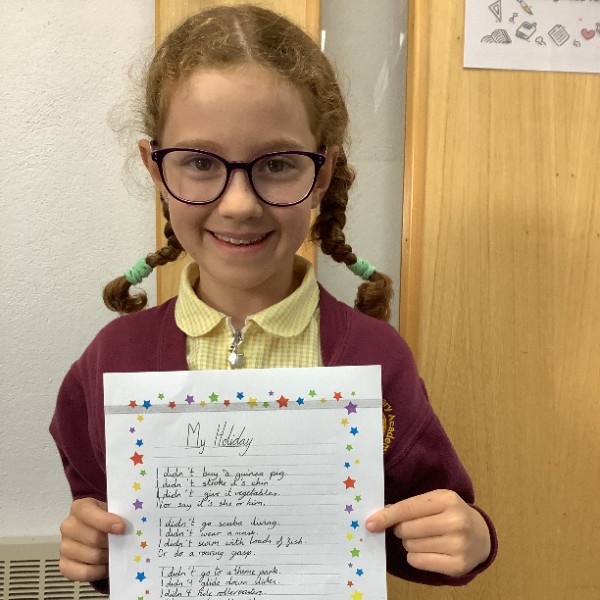 My Holiday
I didn't buy a guinea pig.
I didn't stroke it's chin
I didn't give it vegetables.
Or say it's she or him.
I didn't go scuba diving.
I didn't wear a mask.
I didn't swim with loads of fish.
Or do a roaring gasp.
I didn't go to a theme park.
I didn't glide down slides.
I didn't
rollercoasters
ry Academy